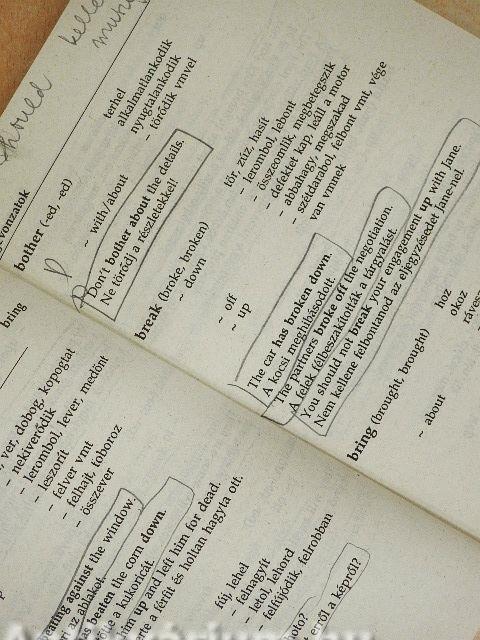 kelle
mutu
-vonzatok
bother (-ed, -ed)
terhel
alkalmatlankodik
nyugtalankodik
~ with/about
– törődik vmvel
Don't bother about the details.
Ne törődj a részletekkel!
break (broke, broken)
tör, zúz, hasít
~ down
– lerombol, lebont
– összeomlik, megbetegszik
– defektet kap, leáll a motor
~ off
– abbahagy, megszakad
~ up
– szétdarabol, felbont vmt, vége
van vmnek
The car has broken down.
A kocsi meghibásodott.
The partners broke off the negotiation.
A felek félbeszakították a tárgyalást.
You should not break your engagement up with Jane.
Nem kellene felbontanod az eljegyzésedet Jane-nel.
bring (brought, brought)
hoz
okoz
~ about
bring
ver, dobog, kopogtat
– nekiverődik
– lerombol, lever, medönt
– leszorít
– felver vmt
– felhajt, toboroz
– összever
against the window.
az ablakot.
beaten the corn down.
a kukoricát.
up and left him for dead.
a férfit és holtan hagyta ott.
fúj, lehel
– felnagyít
– letol, lehord
– felfújódik, felrobban
a képről?